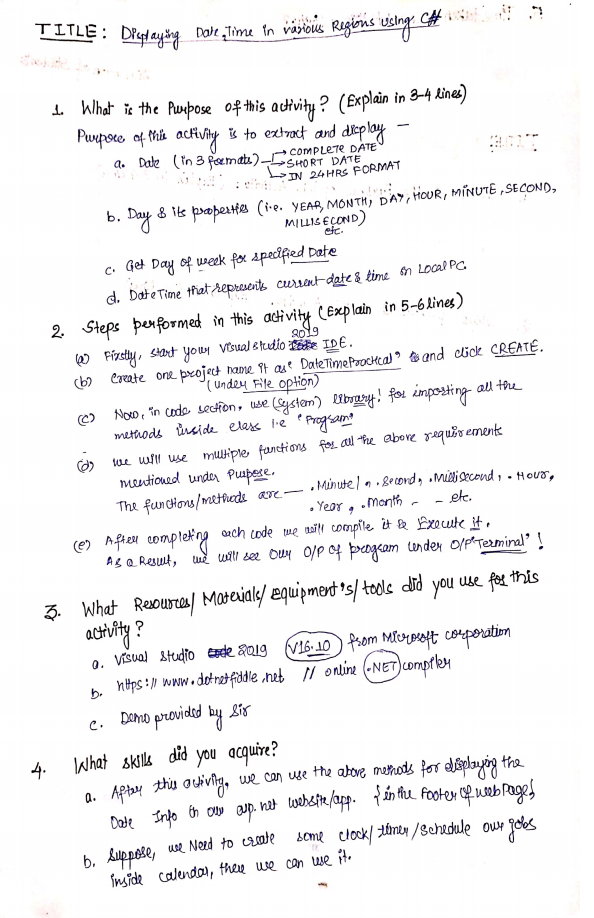 TITLE: Displaying Date, Time in various Regions using C#
1. What is the Purpose of this activity? (Explain in 3-4 lines)
Purpose of this activity is to extract and display —
a. Date (in 3 formats) → COMPLETE DATE
→ SHORT DATE
→ IN 24HRS FORMAT
b. Day & its properties (i.e. YEAR, MONTH, DAY, HOUR, MINUTE, SECOND,
MILLISECOND)
etc.
c. Get Day of week for specified Date
d. DateTime that represents current date & time on Local PC.
2. Steps performed in this activity (Explain in 5-6 lines)
(a) Firstly, start your Visual studio 2019 IDE.
(b) Create one project name it as "DateTimeProctical" and click CREATE.
(under File option)
(c) Now, in code section, use (System) library! for importing all the
methods inside class i.e "Program"
(d) we will use multiple functions for all the above requirements
mentioned under Purpose.
The functions/methods are — .Minute, .Second, .Millisecond, .Hour,
.Year, .Month - - etc.
(e) After completing each code we will compile it & Execute it.
As a Result, we will see our O/P of program under O/P "Terminal"!
3. What Resources/ Materials/ equipment's/ tools did you use for this
activity?
a. Visual studio code 2019 (V16.10) from Microsoft corporation
b. https:// www.dotnetfiddle.net // online (.NET) compiler
c. Demo provided by Sir
4. What skills did you acquire?
a. After this activity, we can use the above methods for displaying the
Date Info in our asp.net website/app. {in the Footer of web Page}
b. Suppose, we Need to create some clock/ timer /Schedule our jobs
inside calendar, there we can use it.